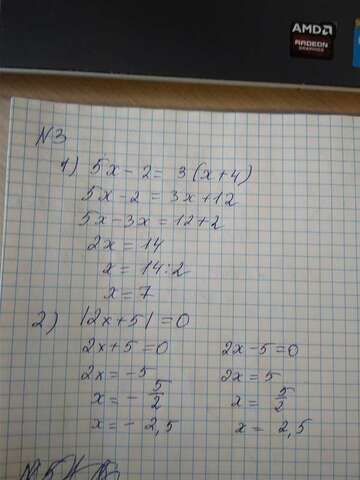 AMD
RADEON
GRAPHICS
N3
1) 5x - 2 = 3(x+4)
5x - 2 = 3x + 12
5x - 3x = 12 + 2
2x = 14
x = 14 : 2
x = 7
2) |2x + 5| = 0
2x + 5 = 0
2x = -5
x = - 5/2
x = - 2,5
2x - 5 = 0
2x = 5
x = 5/2
x = 2,5